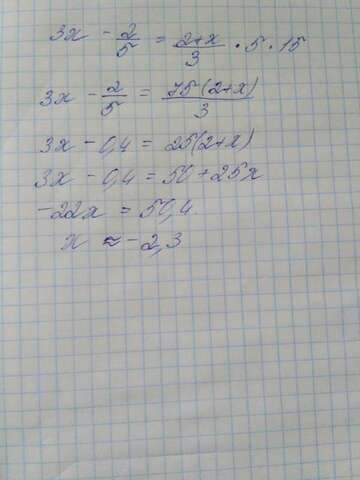 3x - 2/5 = (2+x)/3 · 5 · 15
3x - 2/5 = 75(2+x)/3
3x - 0,4 = 25(2+x)
3x - 0,4 = 50 + 25x
-22x = 50,4
x ≈ -2,3